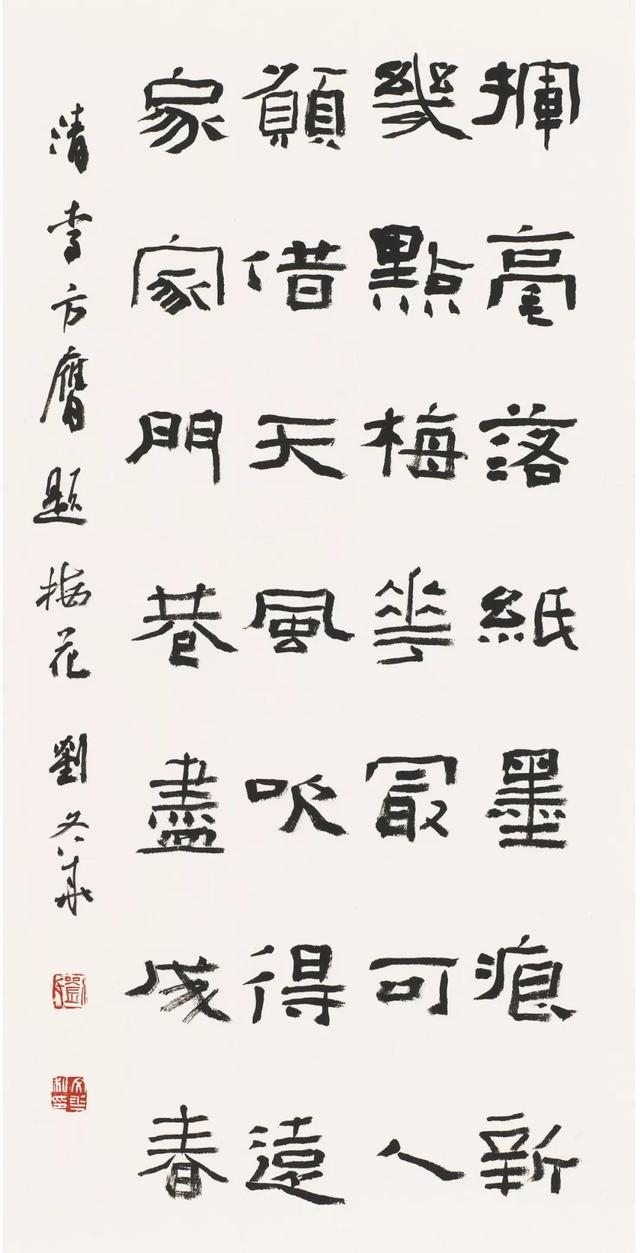 揮毫落紙墨痕新
幾點梅花冣可人
願借天風吹得遠
家家門巷盡成春
清李方膺題梅花 劉文華